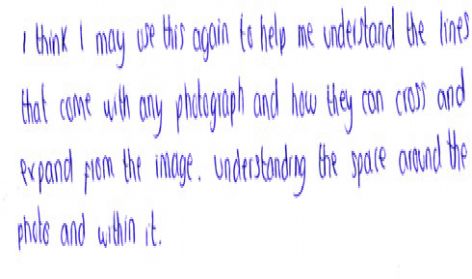 I think I may use this again to help me understand the lines
that come with any photograph and how they can cross and
expand from the image. Understanding the space around the
photo and within it.